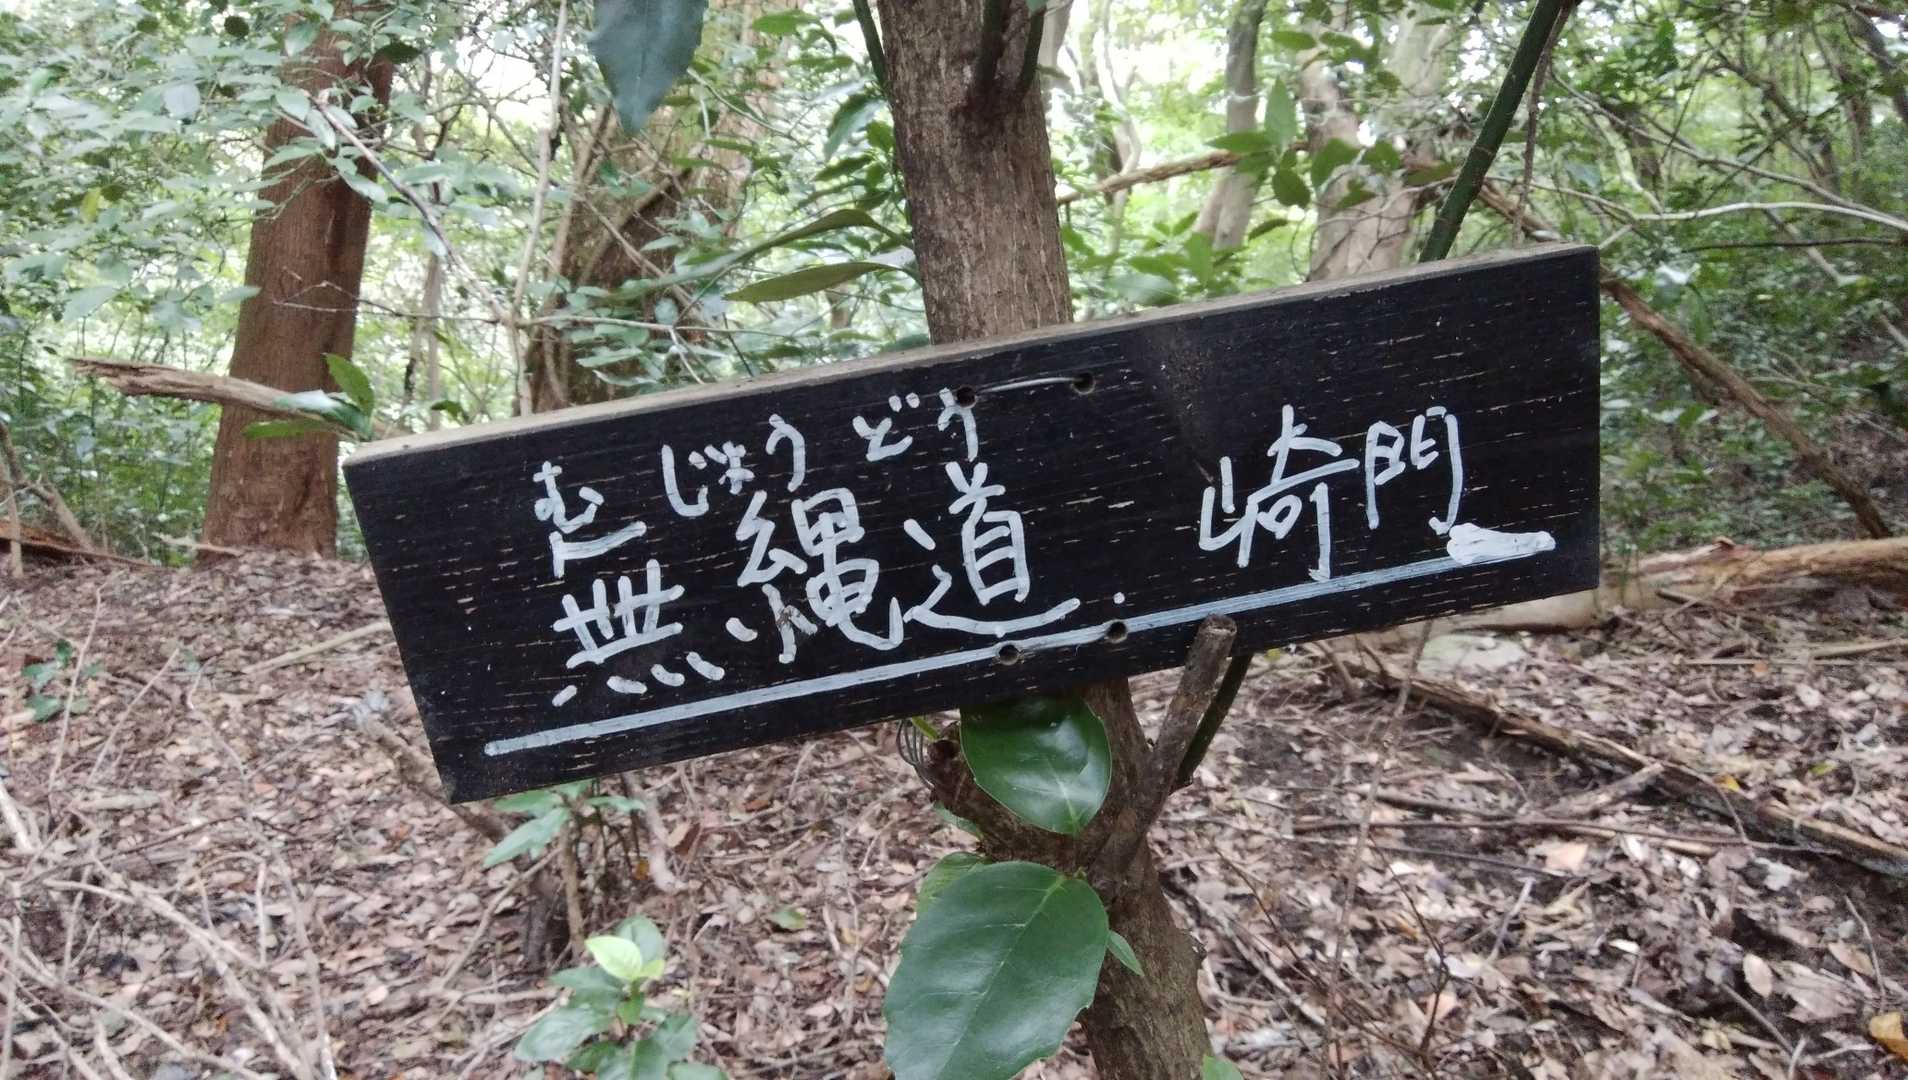 むじょうどう
無縄道 崎門